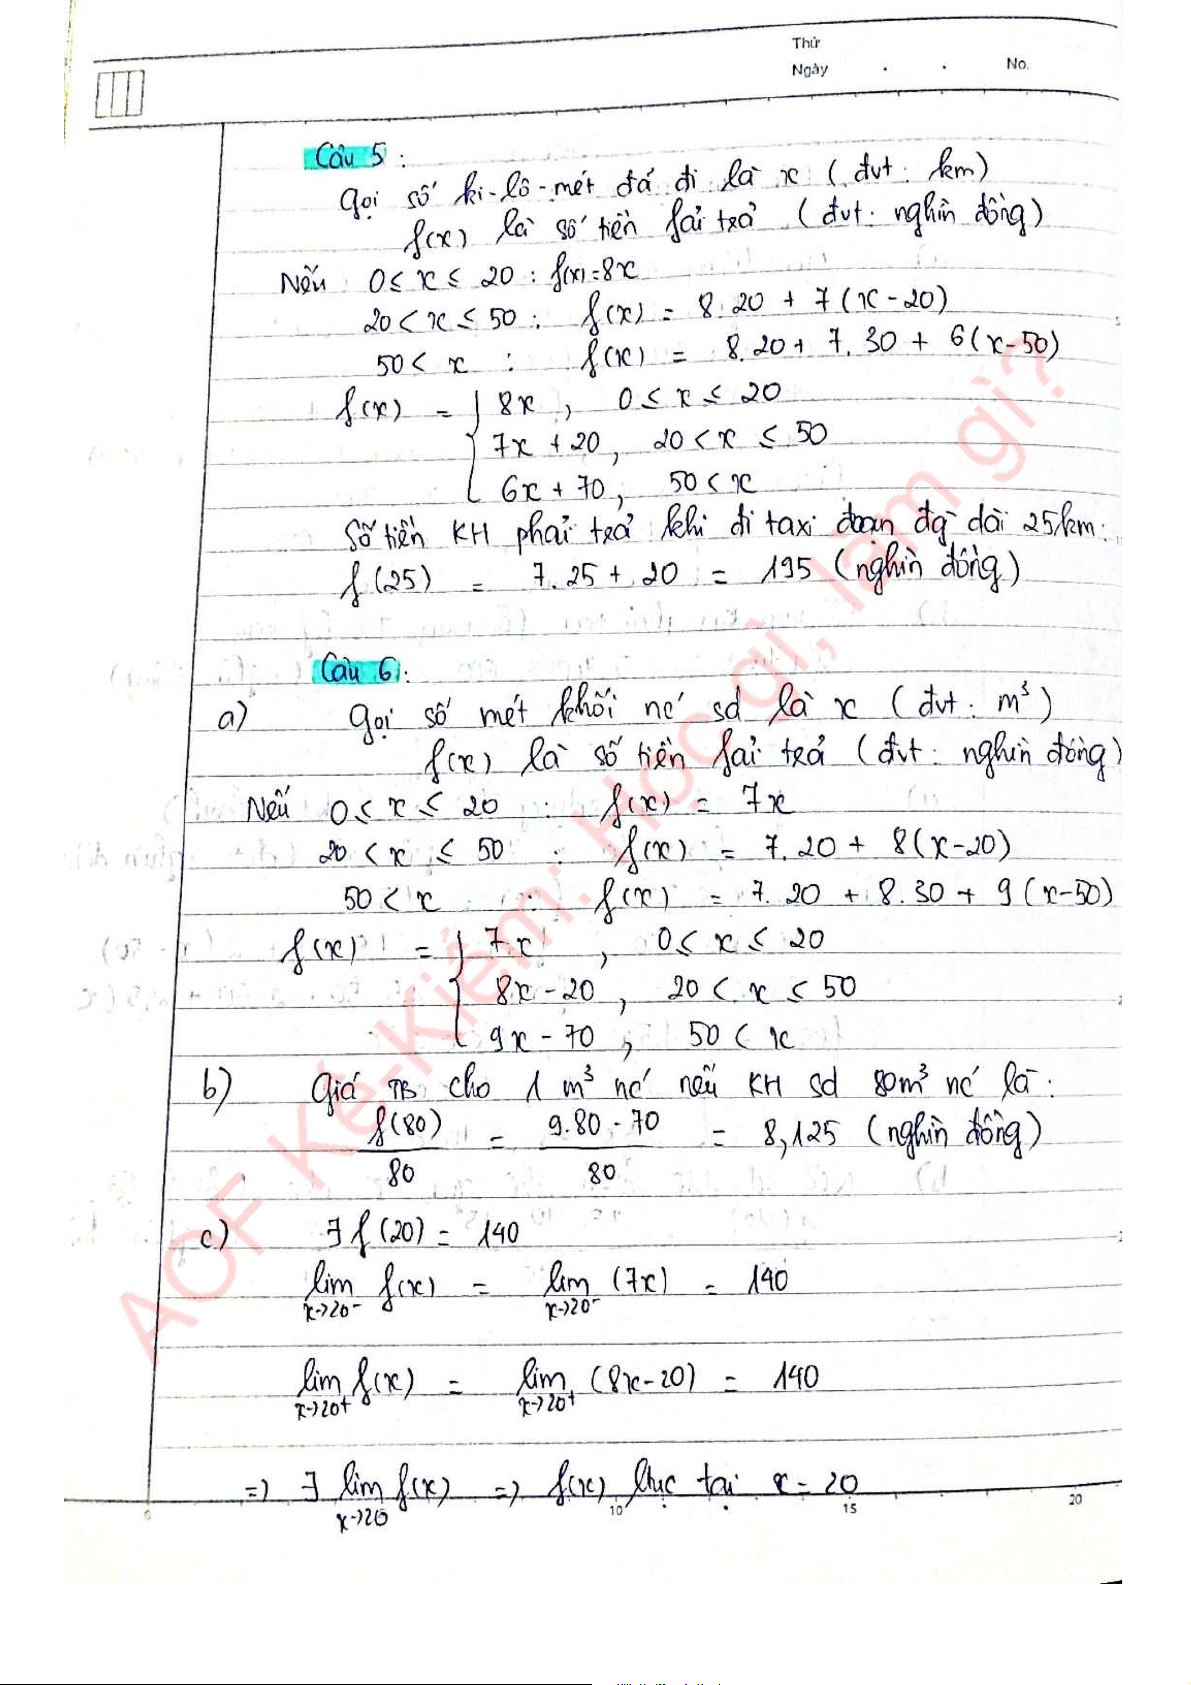 Thứ
Ngày . . No.
Câu 5 :
Gọi số ki-lô-mét đã đi là x ( đvt : km)
f(x) là số tiền fải trả ( đvt : nghìn đồng)
Nếu 0 ≤ x ≤ 20 : f(x) = 8x
20 < x ≤ 50 : f(x) = 8.20 + 7(x-20)
50 < x : f(x) = 8.20 + 7.30 + 6(x-50)
f(x) = { 8x , 0 ≤ x ≤ 20
7x + 20 , 20 < x ≤ 50
6x + 70 , 50 < x
Số tiền KH phải trả khi đi taxi đoạn đg dài 25km :
f(25) = 7.25 + 20 = 195 (nghìn đồng)
Câu 6 :
a) Gọi số mét khối nc sd là x ( đvt : m³)
f(x) là số tiền fải trả ( đvt : nghìn đồng)
Nếu 0 ≤ x ≤ 20 : f(x) = 7x
20 < x ≤ 50 : f(x) = 7.20 + 8(x-20)
50 < x : f(x) = 7.20 + 8.30 + 9(x-50)
f(x) = { 7x , 0 ≤ x ≤ 20
8x - 20 , 20 < x ≤ 50
9x - 70 , 50 < x
b) Giá TB cho 1 m³ nc nếu KH sd 80m³ nc là :
f(80)/80 = 9.80 - 70/80 = 8,125 (nghìn đồng)
c) ∃ f(20) = 140
lim x→20⁻ f(x) = lim x→20⁻ (7x) = 140
lim x→20⁺ f(x) = lim x→20⁺ (8x-20) = 140
=> ∃ lim x→20 f(x) => f(x) ltục tại x = 20
10 15 20
AOF Kè-Kiểm: Học gì, làm gì?